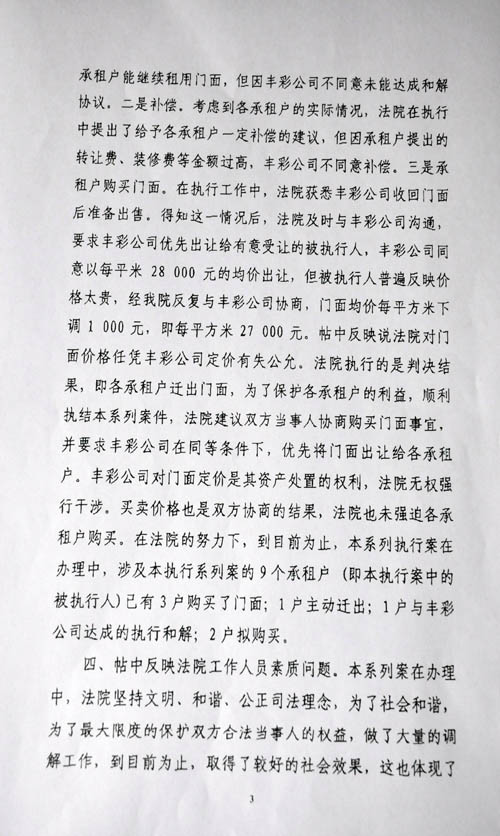 承租户能继续租用门面，但因丰彩公司不同意未能达成和解
协议。二是补偿。考虑到各承租户的实际情况，法院在执行
中提出了给予各承租户一定补偿的建议，但因承租户提出的
转让费、装修费等金额过高，丰彩公司不同意补偿。三是承
租户购买门面。在执行工作中，法院获悉丰彩公司收回门面
后准备出售。得知这一情况后，法院及时与丰彩公司沟通，
要求丰彩公司优先出让给有意受让的被执行人，丰彩公司同
意以每平米 28 000 元的均价出让，但被执行人普遍反映价
格太贵，经我院反复与丰彩公司协商，门面均价每平方米下
调 1 000 元，即每平方米 27 000 元。帖中反映说法院对门
面价格任凭丰彩公司定价有失公允。法院执行的是判决结
果，即各承租户迁出门面，为了保护各承租户的利益，顺利
执结本系列案件，法院建议双方当事人协商购买门面事宜，
并要求丰彩公司在同等条件下，优先将门面出让给各承租
户。丰彩公司对门面定价是其资产处置的权利，法院无权强
行干涉。买卖价格也是双方协商的结果，法院也未强迫各承
租户购买。在法院的努力下，到目前为止，本系列执行案在
办理中，涉及本执行系列案的 9 个承租户 (即本执行案中的
被执行人)已有 3 户购买了门面；1 户主动迁出；1 户与丰彩
公司达成的执行和解；2 户拟购买。
四、帖中反映法院工作人员素质问题。本系列案在办理
中，法院坚持文明、和谐、公正司法理念，为了社会和谐，
为了最大限度的保护双方合法当事人的权益，做了大量的调
解工作，到目前为止，取得了较好的社会效果，这也体现了
3